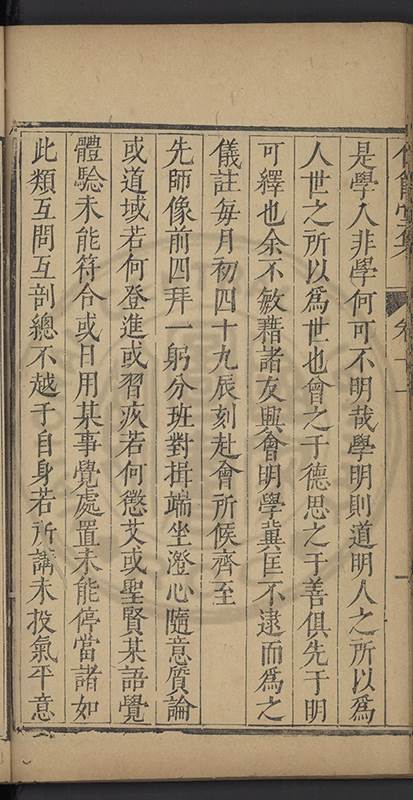 是學人非學何可不明哉學明則道明人之所以爲
人世之所以爲世也會之于德思之于善俱先于明
可繹也余不敏藉諸友興會明學冀匡不逮而爲之
儀註每月初四十九辰刻赴會所候齊至
先師像前四拜一躬分班對揖端坐澄心隨意質論
或道域若何登進或習疚若何懲艾或聖賢某語覺
體驗未能符合或日用某事覺處置未能停當諸如
此類互問互剖總不越于自身若所講未投氣平意